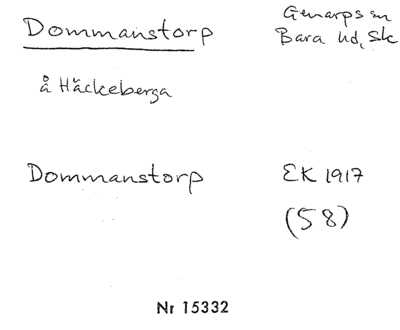 Dommanstorp
Genarps sn
Bara hd, Sk
å Häckeberga
Dommanstorp
EK 1917
(58)
Nr 15332